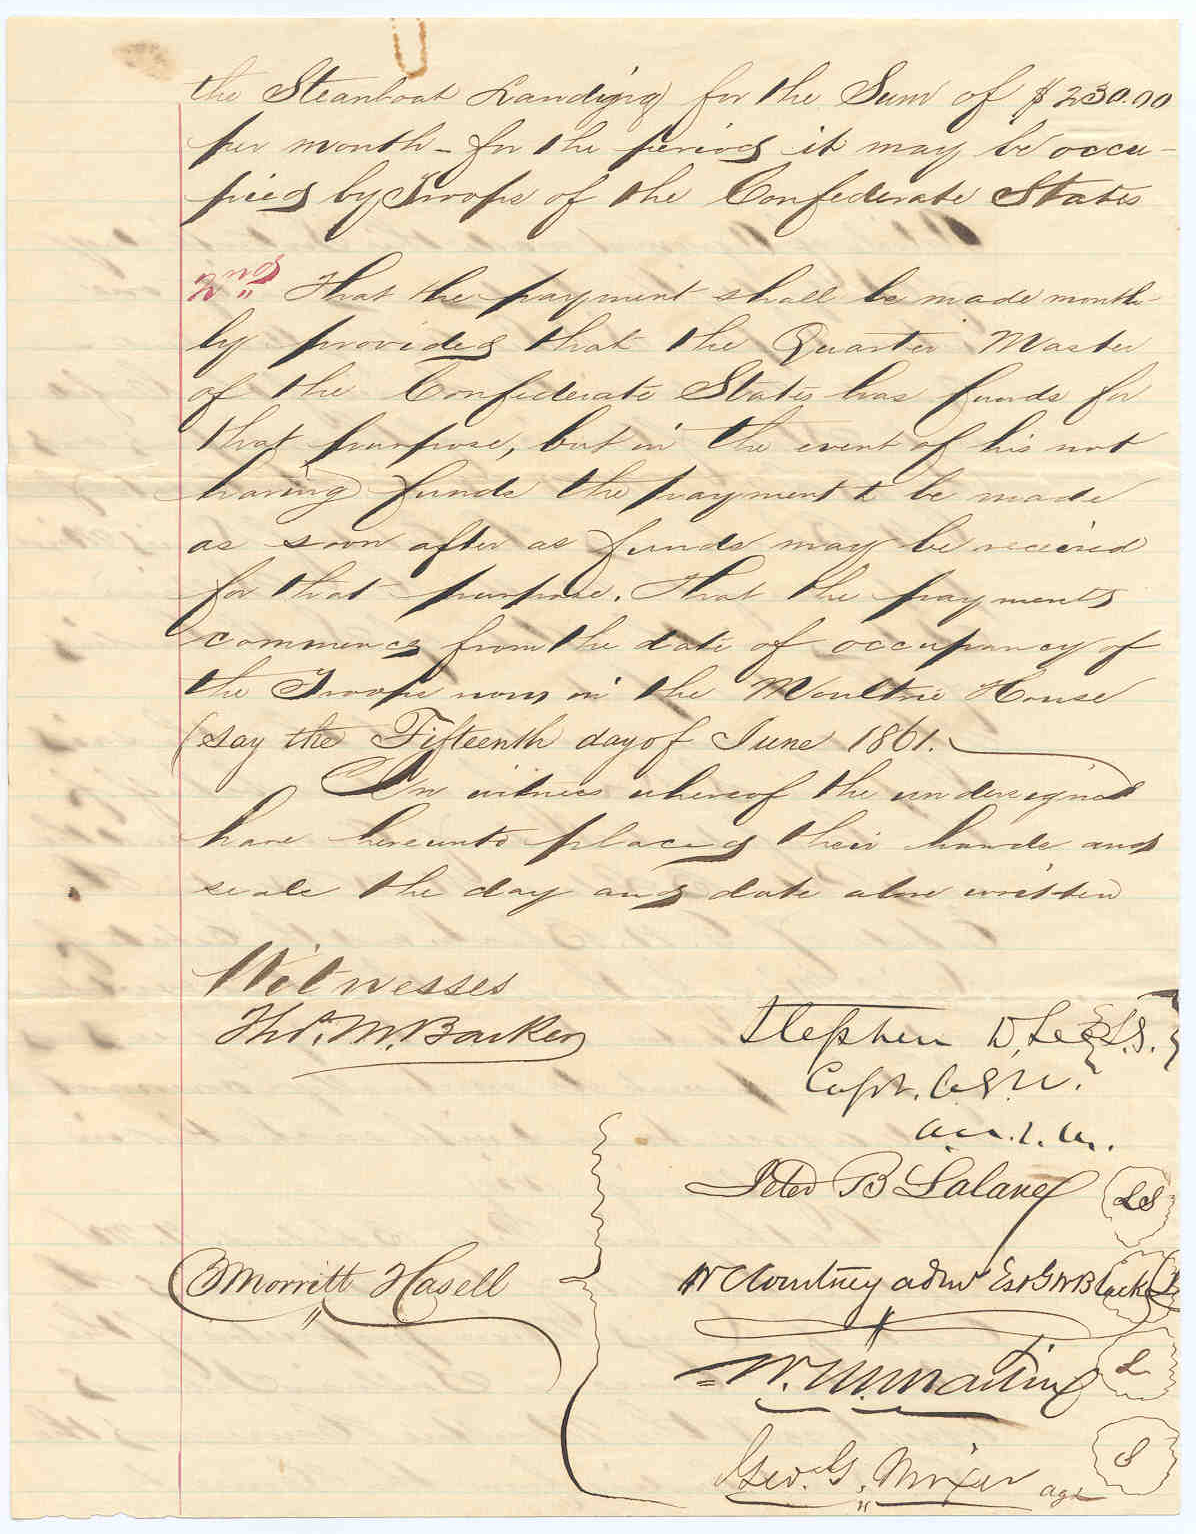 the Steamboat Landing) for the Sum of $230.00
per month - for the period it may be occu-
pied by Troops of the Confederate States
2nd " That the payment shall be made month-
ly provided that the Quarter Master
of the Confederate States has funds for
that purpose, but in the event of his not
having funds the payment to be made
as soon after as funds may be received
for that purpose. That the payments
commence from the date of occupancy of
the Troops now in the Moultrie House
(say the Fifteenth day of June 1861.
In witness whereof the undersigned
have hereunto placed their hands and
seals the day and date above written
Witnesses
Thos. M. Barker
Stephen D. Lee L.S.
Capt. C.S.A.
Peter B Lalane LS
Morritt Hasell
W C Courtney admr Est G W Black L
W. M. Martin L
Geo. G. Mixer agt S